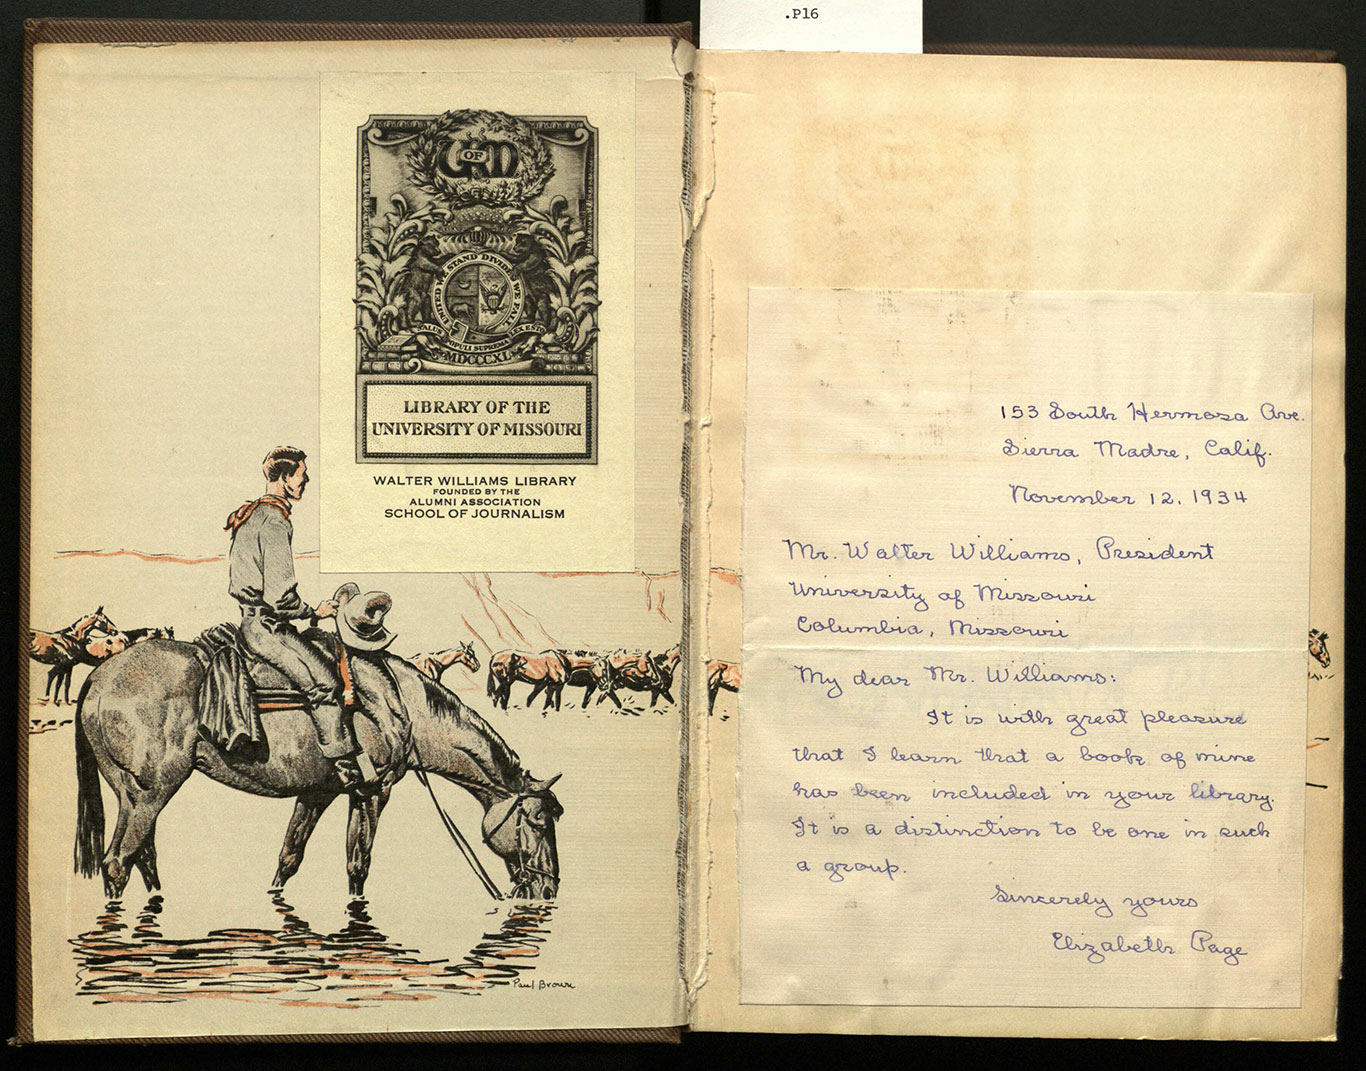 .P16
U OF M
UNITED WE STAND DIVIDED WE FALL
SALUS POPULI SUPREMA LEX ESTO
MDCCCXL
LIBRARY OF THE
UNIVERSITY OF MISSOURI
WALTER WILLIAMS LIBRARY
FOUNDED BY THE
ALUMNI ASSOCIATION
SCHOOL OF JOURNALISM
Paul Brown
153 South Hermosa Ave.
Sierra Madre, Calif.
November 12, 1934
Mr. Walter Williams, President
University of Missouri
Columbia, Missouri
My dear Mr. Williams:
It is with great pleasure
that I learn that a book of mine
has been included in your library.
It is a distinction to be one in such
a group.
Sincerely yours
Elizabeth Page